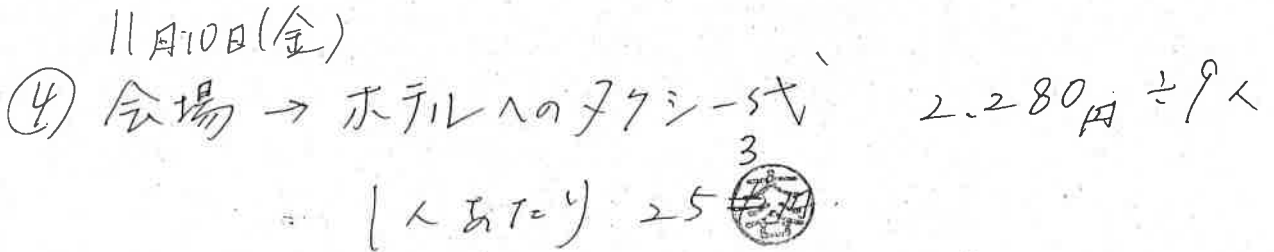 11月10日(金)
④ 会場 → ホテルへのタクシー代 2.280円÷9人
3
1人あたり 25